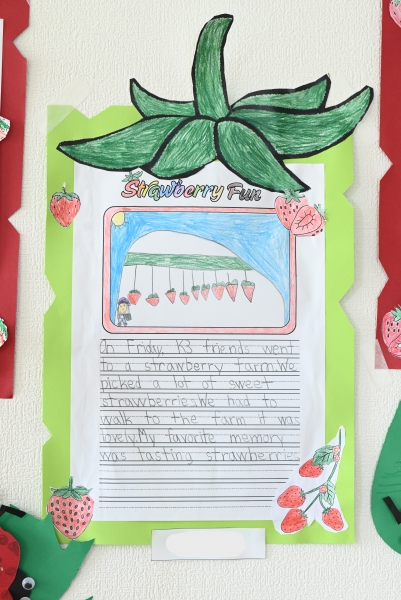 Strawberry Fun
On Friday, K3 friends went
to a strawberry farm.We
picked a lot of sweet
strawberries.We had to
walk to the farm it was
lovely.My favorite memory
was tasting strawberries